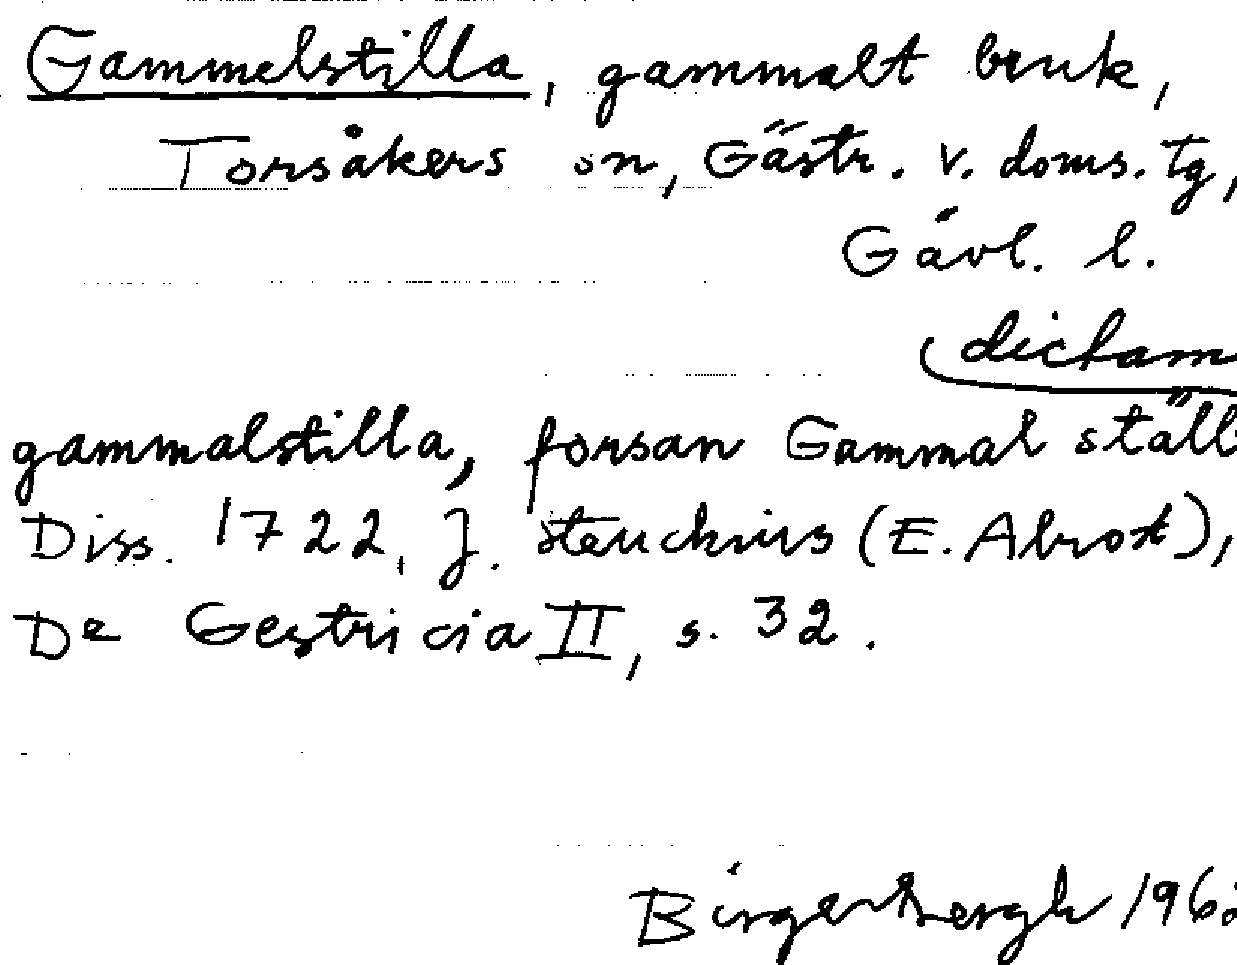 Gammelstilla, gammalt bruk,
Torsåkers sn, Gästr. v. doms. tg,
Gävl. l.
dictam
gammalstilla, forsan Gammal ställ
Diss. 1722, J. Steuchius (E. Abrot),
De Gestricia II, s. 32.
Birger Bergh 196